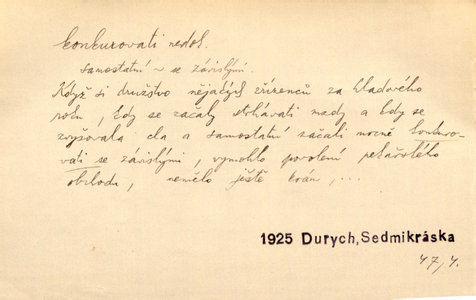 konkurovati nedok.
samostatní ~ se závislými.
Když si družstvo nějakých zřízenců za hladového
roku, kdy se začaly strhávati mzdy a kdy se
zvyšovala cla a samostatní začali mocně konkuro-
vati se závislými, vymohlo povolení pekařského
obchodu, nemělo ještě krám, ...
1925 Durych, Sedmikráska
47, 4.